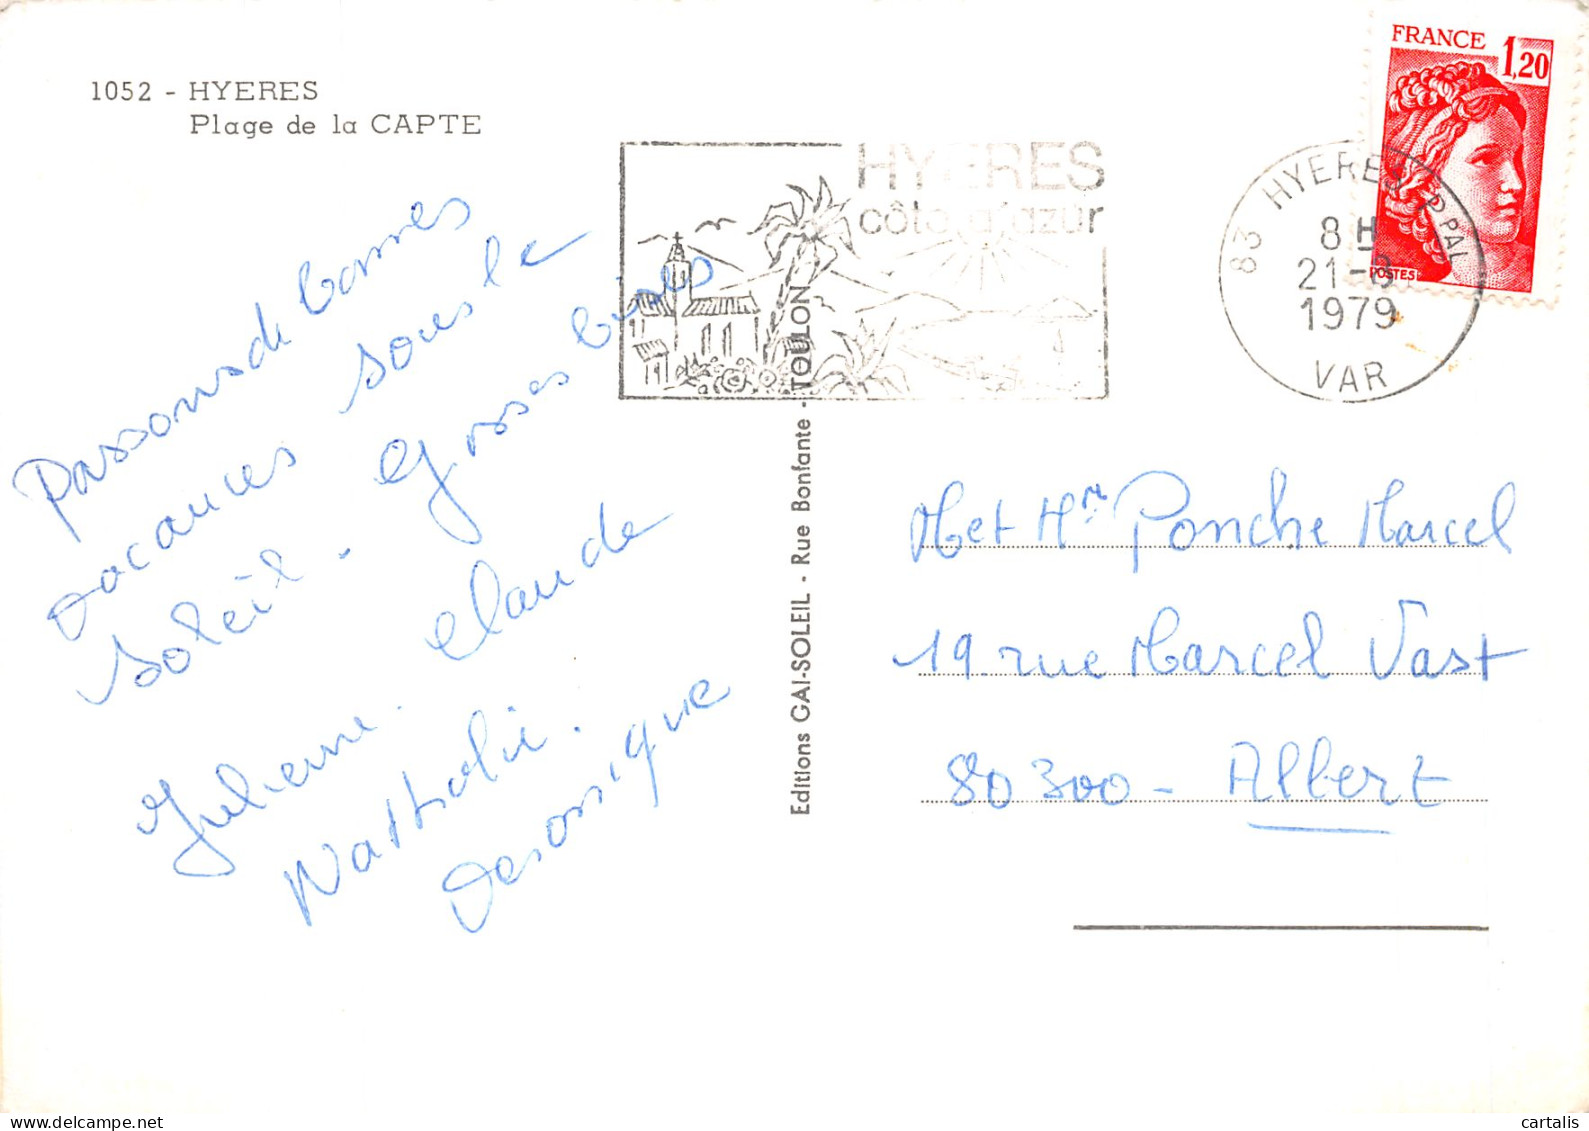 1052 - HYERES
Plage de la CAPTE
Passons de bonnes
vacances sous le
soleil - Grosses bises
Julienne. Claude
Nathalie.
Veronique
Editions GAI-SOLEIL - Rue Bonfante - TOULON
HYERES
côte d'azur
FRANCE 1,20
POSTES
83 HYERES PPAL
8H
21-8
1979
VAR
M et Mme Ponche Marcel
19 rue Marcel Vast
80300 - Albert
delcampe.net
cartalis